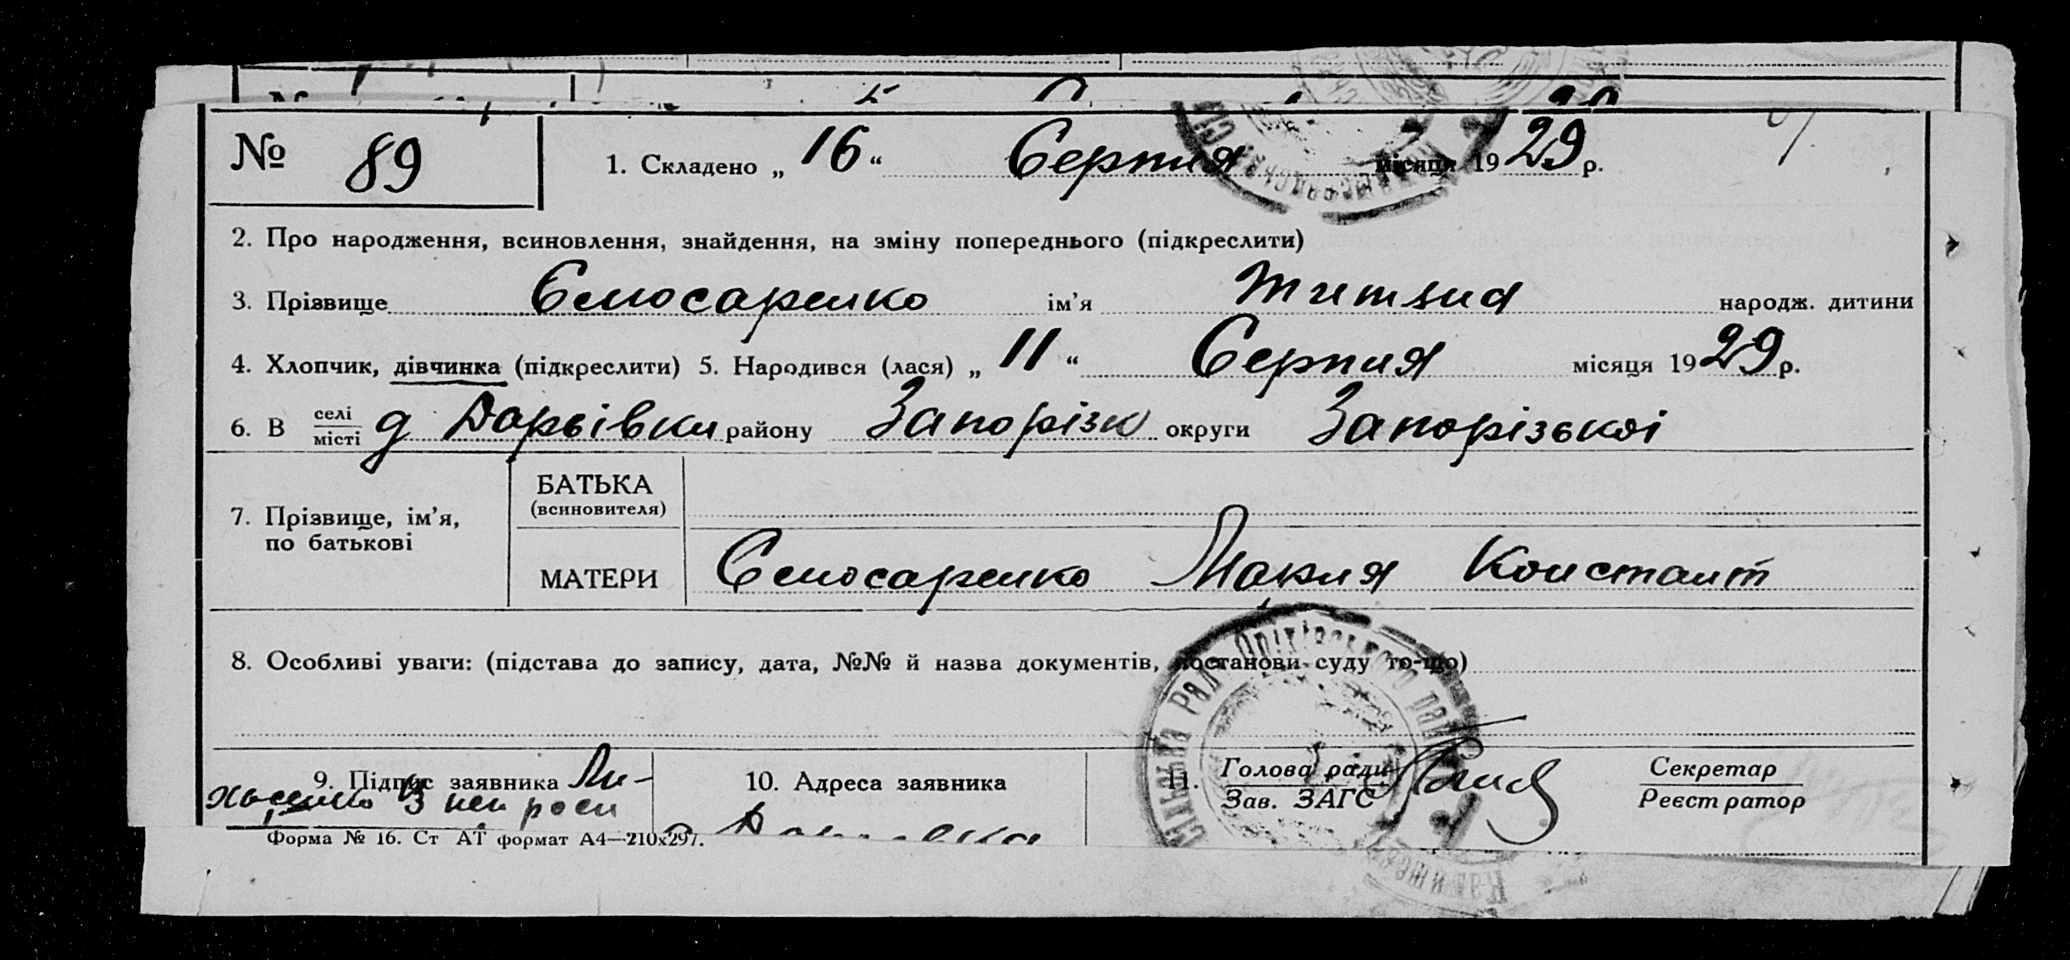 № 89 1. Складено „ 16 “ Серпня місяця 1929 р.
2. Про народження, всиновлення, знайдення, на зміну попереднього (підкреслити)
3. Прізвище Єлюсаренко ім’я народж. дитини
4. Хлопчик, дівчинка (підкреслити) 5. Народився (лася) „ 11 “ Серпня місяця 1929 р.
6. В селі/місті д Дарьівки району Запорізк округи Запорізькоі
7. Прізвище, ім’я, по батькові
БАТЬКА
(всиновителя)
МАТЕРИ Єлюсаренко Мария Констант
8. Особливі уваги: (підстава до запису, дата, №№ й назва документів, постанови суду то-що)
9. Підпис заявника 10. Адреса заявника 11. Голова ради Секретар
Зав. ЗАГС Реєстратор
Форма № 16. Ст АТ формат А4—210х297.